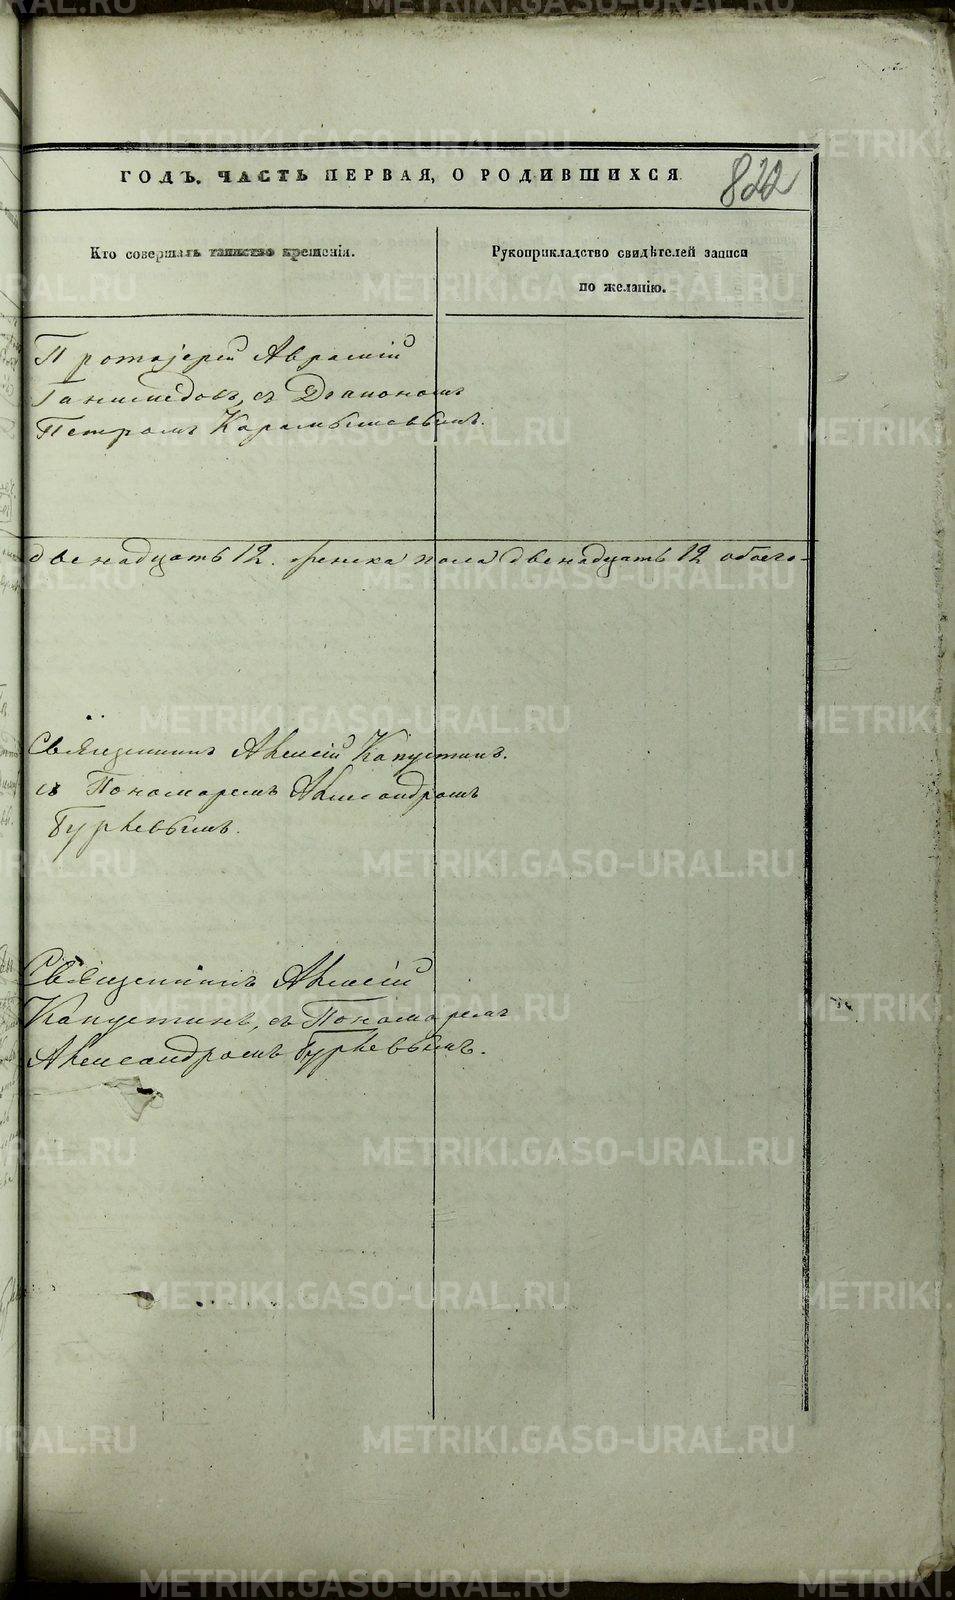 ГОДЪ. ЧАСТЬ ПЕРВАЯ, О РОДИВШИХСЯ.
822
Кто совершалъ таинство крещенія.
Рукоприкладство свидѣтелей записи
по желанію.
Протоіерей Аврамій
Ганимедовъ, съ Діакономъ
Петромъ Карамышевымъ.
двенадцать 12. женска пола двенадцать 12 обоего-
Священникъ Алексій Капустинъ.
съ Пономаремъ Александромъ
Гуркевымъ.
Священникъ Алексій
Капустинъ, съ Пономаремъ
Александромъ Гуркевымъ.
METRIKI.GASO-URAL.RU